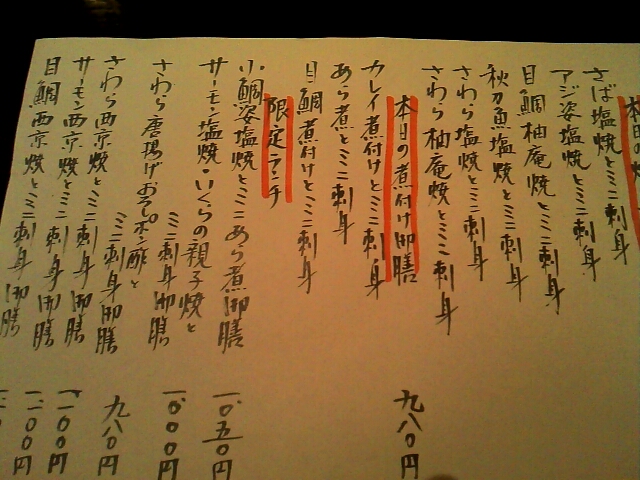 さば塩焼とミニ刺身
アジ姿塩焼とミニ刺身
目鯛柚庵焼とミニ刺身
秋刀魚塩焼とミニ刺身
さわら塩焼とミニ刺身
さわら柚庵焼とミニ刺身
本日の煮付け御膳 九八〇円
カレイ煮付けとミニ刺身
あら煮とミニ刺身
目鯛煮付けとミニ刺身
限定ランチ
小鯛姿塩焼とミニあら煮御膳 一、〇五〇円
サーモン塩焼・いくらの親子焼と
ミニ刺身御膳 一、〇〇〇円
さわら唐揚げおろしポン酢と
ミニ刺身御膳 九八〇円
さわら西京焼とミニ刺身御膳
サーモン西京焼とミニ刺身御膳 一、一〇〇円
目鯛西京焼とミニ刺身御膳 一、二〇〇円